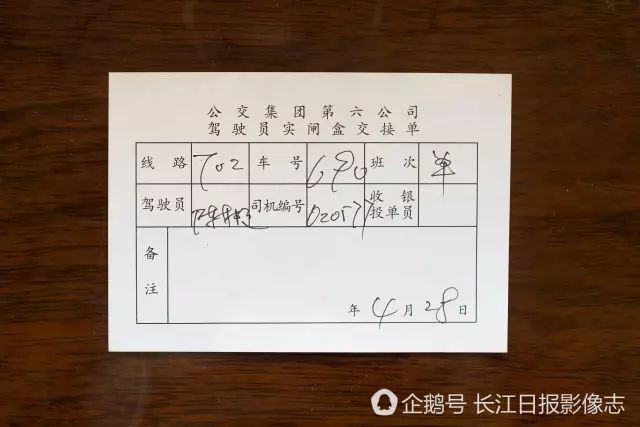 公交集团第六公司
驾驶员实闸盒交接单
线路 702 车号 690 班次 单
驾驶员 司机编号 020577 收银投单员
备注
年4月28日
企鹅号 长江日报影像志